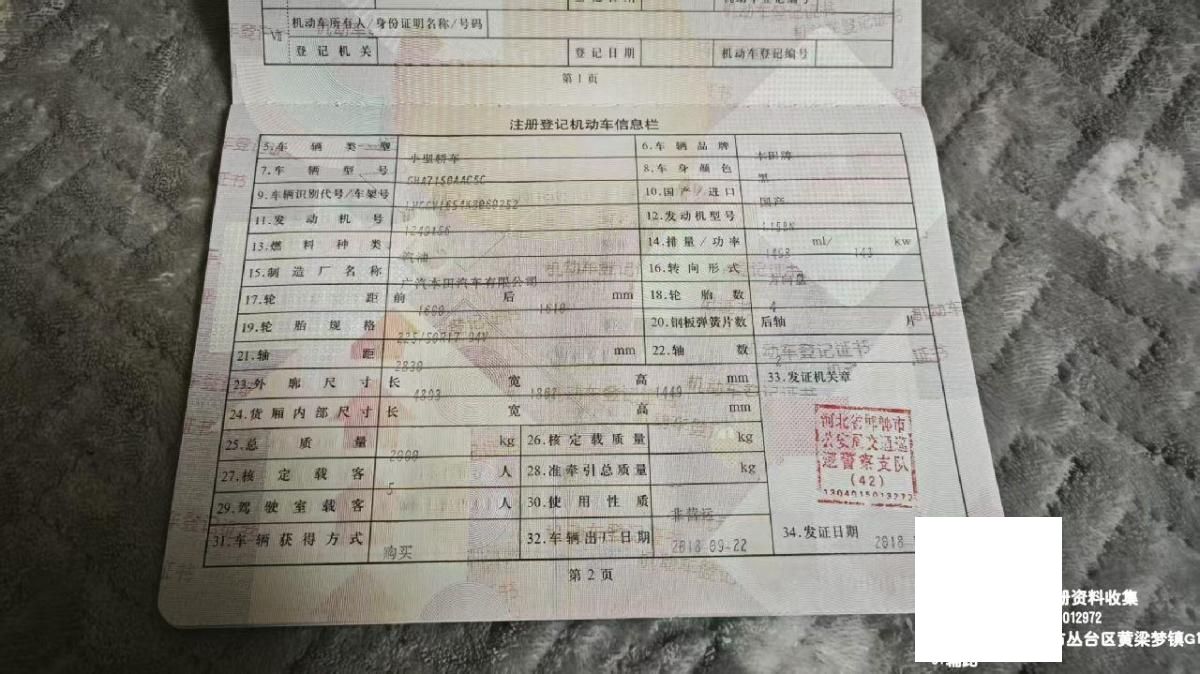 机动车所有人/身份证明名称/号码
Ⅶ
登记机关 登记日期 机动车登记编号
第1页
注册登记机动车信息栏
5.车辆类型 小型轿车 6.车辆品牌 本田牌
7.车辆型号 8.车身颜色 黑
9.车辆识别代号/车架号 10.国产/进口 国产
11.发动机号 12.发动机型号
13.燃料种类 汽油 14.排量/功率 ml/ kw
15.制造厂名称 广汽本田汽车有限公司 16.转向形式 方向盘
17.轮距 前 1600 后 1610 mm 18.轮胎数 4
19.轮胎规格 225/50R17 94V 20.钢板弹簧片数 后轴 片
21.轴距 2830 mm 22.轴数 2
23.外廓尺寸 长 4893 宽 高 1449 mm 33.发证机关章
24.货厢内部尺寸 长 宽 高 mm
河北省邯郸市
公安局交通巡
逻警察支队
(42)
25.总质量 2000 kg 26.核定载质量 kg
27.核定载客 5 人 28.准牵引总质量 kg
29.驾驶室载客 人 30.使用性质 非营运
31.车辆获得方式 购买 32.车辆出厂日期 2018-09-22 34.发证日期 2018
第2页
册资料收集
012972
丛台区黄梁梦镇G1
辅路